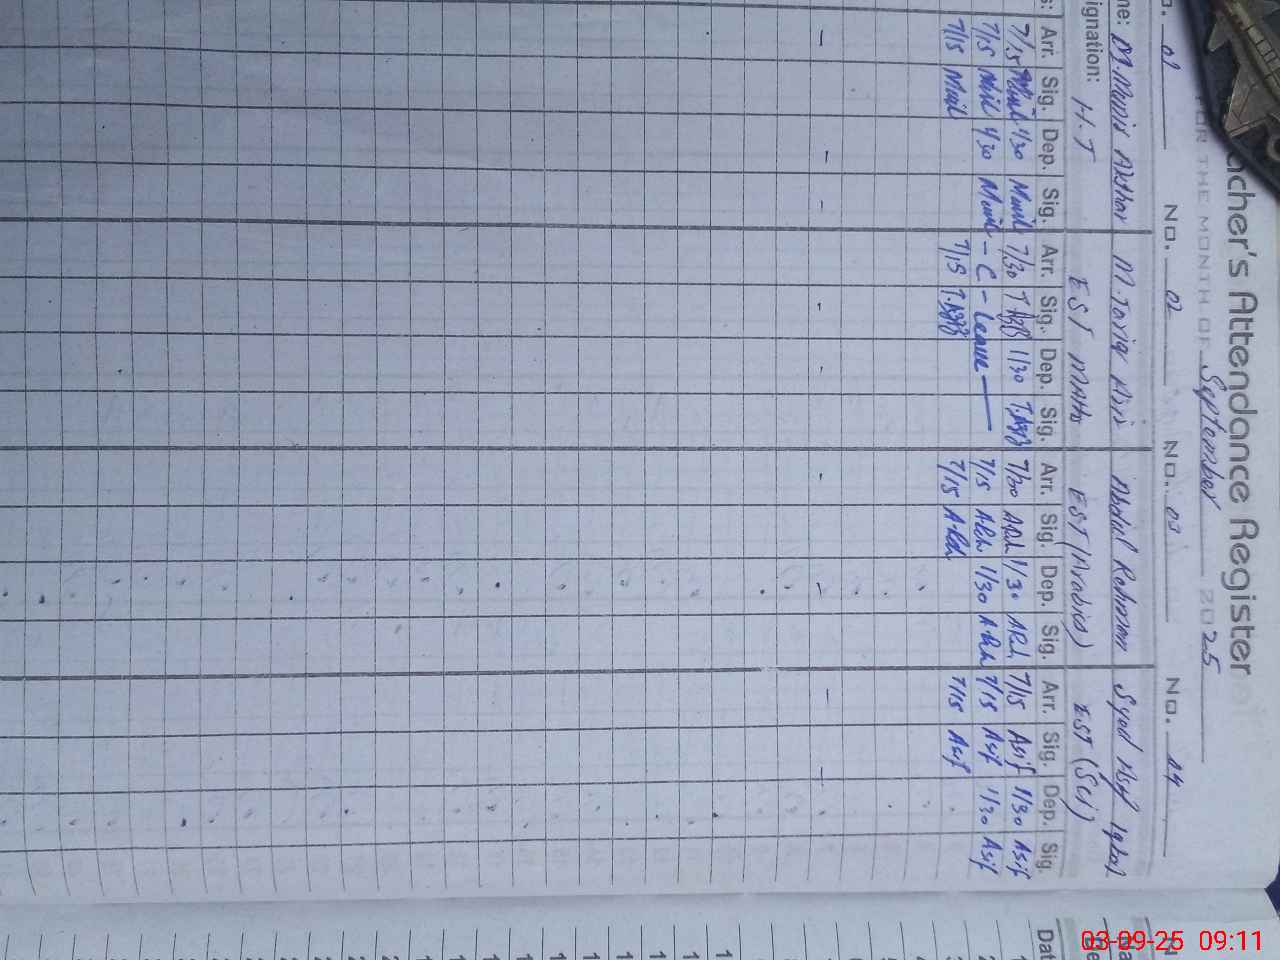 acher's Attendance Register
FOR THE MONTH OF September 2025
o. 01 No. 02 No. 03 No. 04
me: M. Munir Akthar M. Tariq Abdul Rehman Syed Asif Iqbal
ignation: H.T EST Maths EST (Arabic) EST (Sci)
s: Arr. Sig. Dep. Sig. Arr. Sig. Dep. Sig. Arr. Sig. Dep. Sig. Arr. Sig. Dep. Sig.
7/15 Munir 1/30 Munir 7/30 1/30 7/30 1/30 7/15 Asif 1/30 Asif
7/15 Munir 1/30 Munir - C - Leave — 7/15 1/30 7/15 Asif 1/30 Asif
7/15 Munir 7/15 7/15 7/15 Asif
Dat
1
2
3
03-09-25 09:11